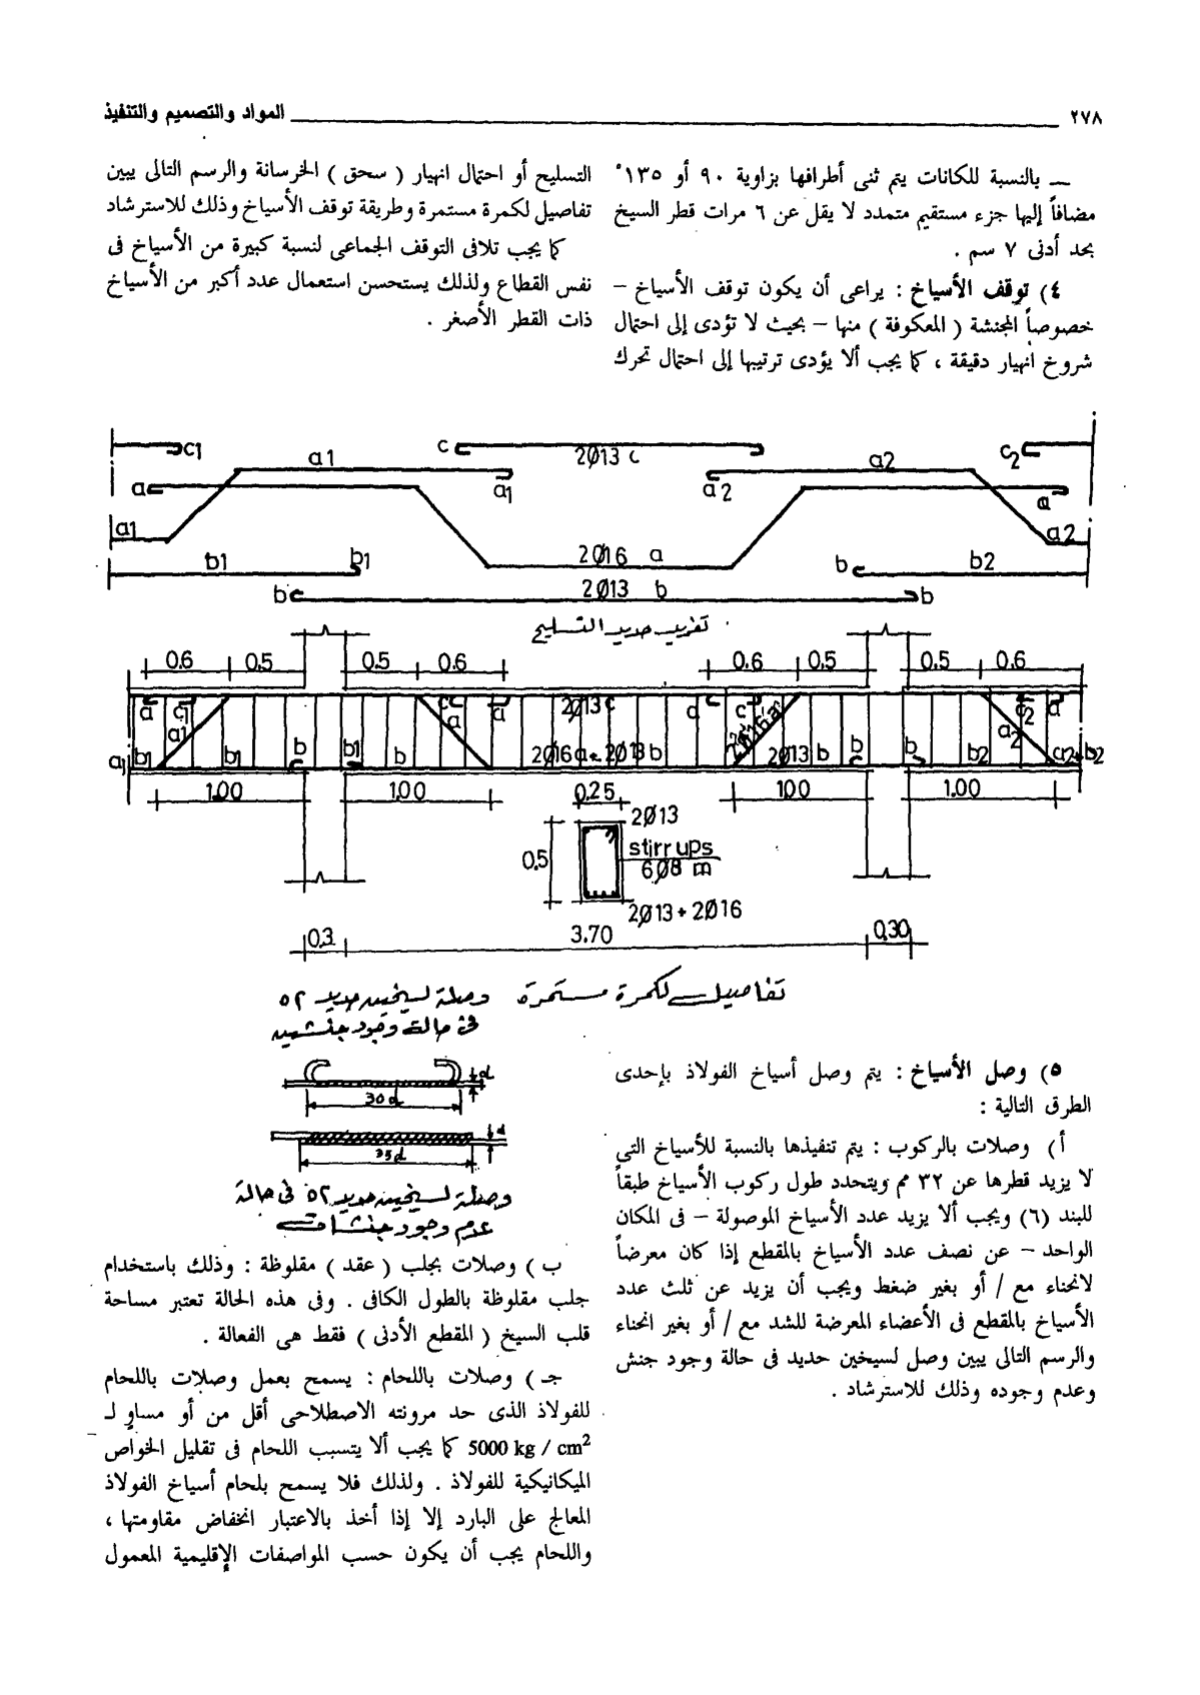 ٢٧٨ المواد والتصميم والتنفيذ
ــ بالنسبة للكانات يتم ثنى أطرافها بزاوية ٩٠ أو ١٣٥°
مضافاً إليها جزء مستقيم متمدد لا يقل عن ٦ مرات قطر السيخ
بحد أدنى ٧ سم .
٤) توقف الأسياخ : يراعى أن يكون توقف الأسياخ –
خصوصاً المجنشة ( المعكوفة ) منها – بحيث لا تؤدى إلى احتمال
شروخ انهيار دقيقة ، كما يجب ألا يؤدى ترتيبها إلى احتمال تحرك
التسليح أو احتمال انهيار ( سحق ) الخرسانة والرسم التالى يبين
تفاصيل لكمرة مستمرة وطريقة توقف الأسياخ وذلك للاسترشاد
كما يجب تلافى التوقف الجماعى لنسبة كبيرة من الأسياخ فى
نفس القطاع ولذلك يستحسن استعمال عدد أكبر من الأسياخ
ذات القطر الأصغر .
c1 c 2Ø13 c c2
a1 a2
a a1 a2 a
a1 a2
b1 b1 2Ø16 a b b2
b 2Ø13 b b
تفريد حديد التسليح
0.6 0.5 0.5 0.6 0.6 0.5 0.5 0.6
a c1 c a 2Ø13 c a c c2 a
a1 a a2
a1 b1 b1 b b1 b 2Ø16 a + 2Ø13 b 2Ø13 b b b b2 a2+b2
1.00 1.00 0.25 1.00 1.00
2Ø13
0.5 stirrups
6Ø8 m
2Ø13 + 2Ø16
0.3 3.70 0.30
تفاصيل لكمرة مستمرة
وصلة لسيخين حديد ٥٢
فى حالة وجود جنشين
d
30 d
d
35d
وصلة لسيخين حديد ٥٢ فى حالة
عدم وجود جنشات
٥) وصل الأسياخ : يتم وصل أسياخ الفولاذ بإحدى
الطرق التالية :
أ) وصلات بالركوب : يتم تنفيذها بالنسبة للأسياخ التى
لا يزيد قطرها عن ٣٢ مم ويتحدد طول ركوب الأسياخ طبقاً
للبند (٦) ويجب ألا يزيد عدد الأسياخ الموصولة – فى المكان
الواحد – عن نصف عدد الأسياخ بالمقطع إذا كان معرضاً
لانحناء مع / أو بغير ضغط ويجب أن يزيد عن ثلث عدد
الأسياخ بالمقطع فى الأعضاء المعرضة للشد مع / أو بغير انحناء
والرسم التالى يبين وصل لسيخين حديد فى حالة وجود جنش
وعدم وجوده وذلك للاسترشاد .
ب ) وصلات بجلب ( عقد ) مقلوظة : وذلك باستخدام
جلب مقلوظة بالطول الكافى . وفى هذه الحالة تعتبر مساحة
قلب السيخ ( المقطع الأدنى ) فقط هى الفعالة .
جـ ) وصلات باللحام : يسمح بعمل وصلات باللحام
للفولاذ الذى حد مرونته الاصطلاحى أقل من أو مساوٍ لـ
5000 kg / cm² كما يجب ألا يتسبب اللحام فى تقليل الخواص
الميكانيكية للفولاذ . ولذلك فلا يسمح بلحام أسياخ الفولاذ
المعالج على البارد إلا إذا أخذ بالاعتبار انخفاض مقاومتها ،
واللحام يجب أن يكون حسب المواصفات الإقليمية المعمول